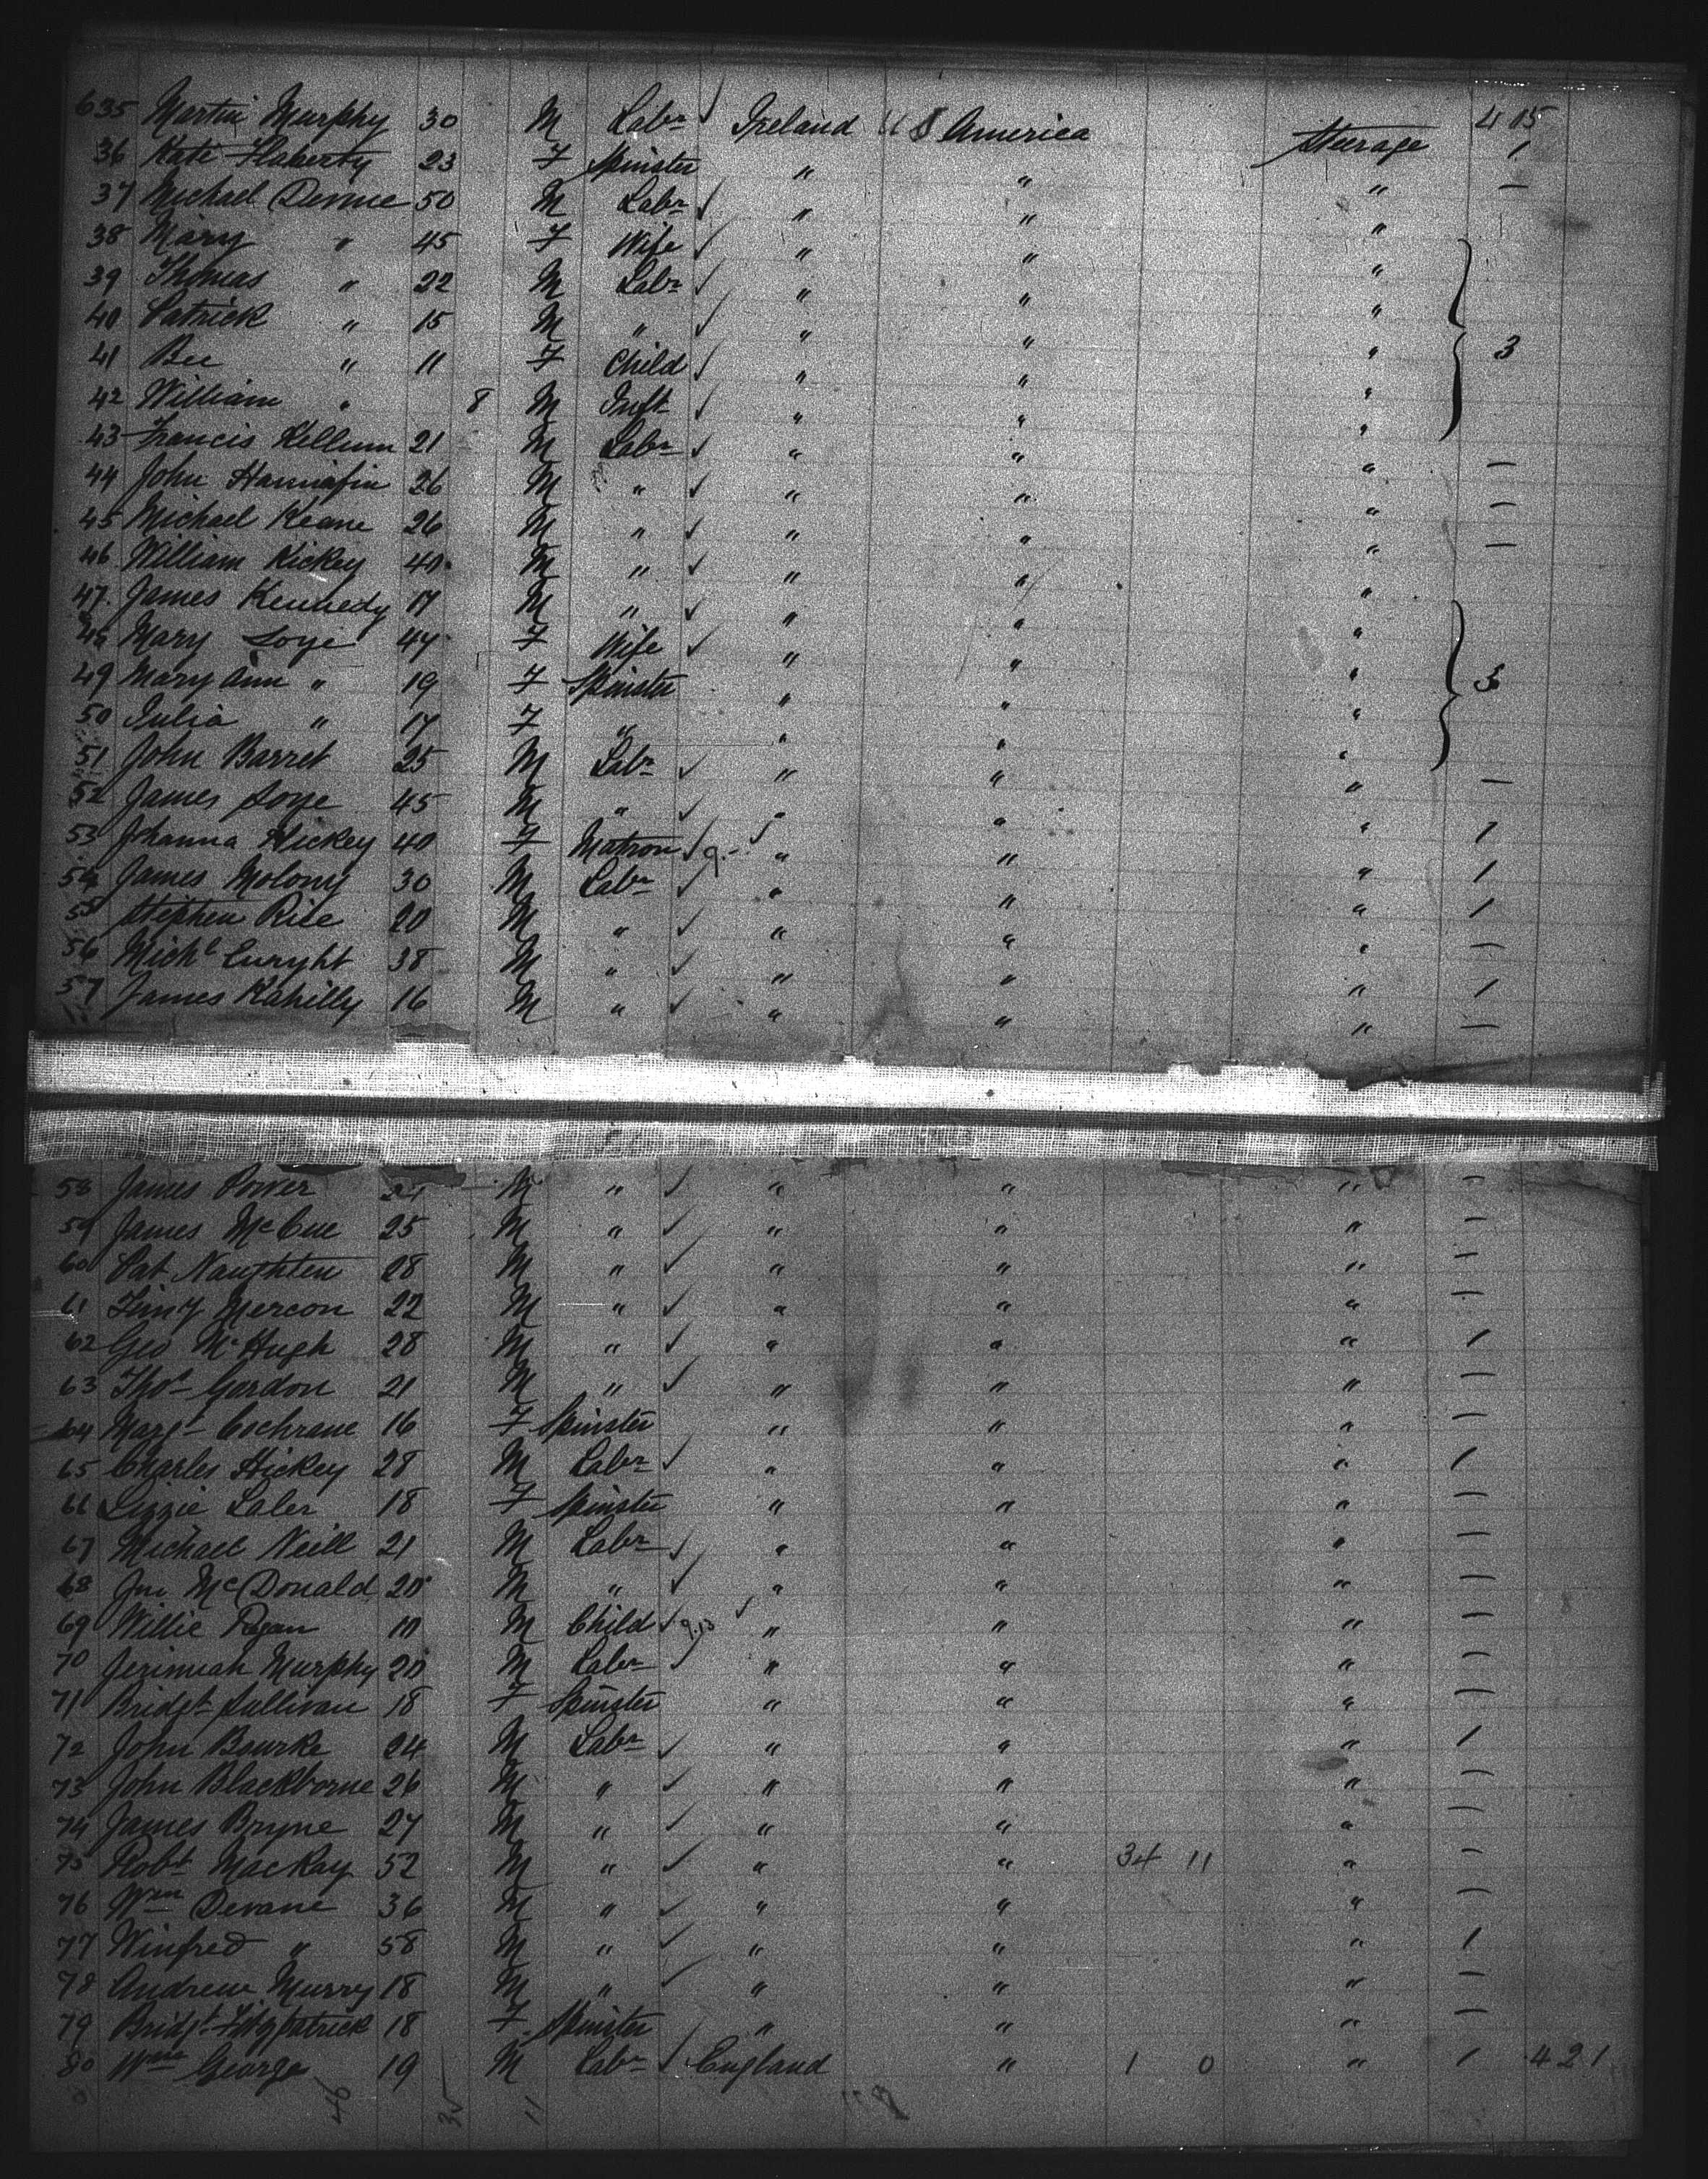 635 Martin Murphy 30 M Labr Ireland U S America Steerage 4 15 1
36 Kate Flaherty 23 F Spinster " " " —
37 Michael Dennie 50 M Labr " " "
38 Mary " 45 F Wife " " "
39 Thomas " 22 M Labr " " "
40 Patrick " 15 M " " " " 3
41 Bee " 11 F Child " " "
42 William " 8 M Inft " " "
43 Francis Kellum 21 M Labr " " " —
44 John Hannifin 26 M " " " " —
45 Michael Keane 26 M " " " " —
46 William Hickey 40 M " " " "
47 James Kennedy 17 M " " " "
48 Mary Foye 47 F Wife " " "
49 Mary Ann " 19 F Spinster " " " 3
50 Julia " 17 F " " " "
51 John Barret 25 M Labr " " " —
52 James Foye 45 M " " " " 1
53 Johanna Hickey 40 F Matron " " " 1
54 James Molony 30 M Labr " " " 1
55 Stephen Rice 20 M " " " " —
56 Michl Enryht 38 M " " " " 1
57 James Kahilly 16 M " " " " —
58 James Power M " " " " —
59 James McCue 25 M " " " " —
60 Pat Naughten 28 M " " " " —
61 Timy Mercon 22 M " " " " —
62 Geo McHugh 28 M " " " " 1
63 Thos Gordon 21 M " " " " —
64 Margt Cochrane 16 F Spinster " " " —
65 Charles Hickey 28 M Labr " " " 1
66 Lizzie Laler 18 F Spinster " " " —
67 Michael Neill 21 M Labr " " " —
68 Jno McDonald 20 M " " " " —
69 Willie Ryan 10 M Child 9.13 " " " —
70 Jerimiah Murphy 20 M Labr " " " —
71 Bridgt Sullivan 18 F Spinster " " " —
72 John Bourke 24 M Labr " " " 1
73 John Blackborne 26 M " " " " —
74 James Bryne 27 M " " " " —
75 Robt MacKay 52 M " " " 34 11 " —
76 Wm Devane 36 M " " " " —
77 Winfred " 58 M " " " " 1
78 Andrew Murry 18 M " " " " —
79 Bridgt Fitzpatrick 18 F Spinster " " " —
80 Wm George 19 M Labr England " 1 0 " 1 421
46 35 11